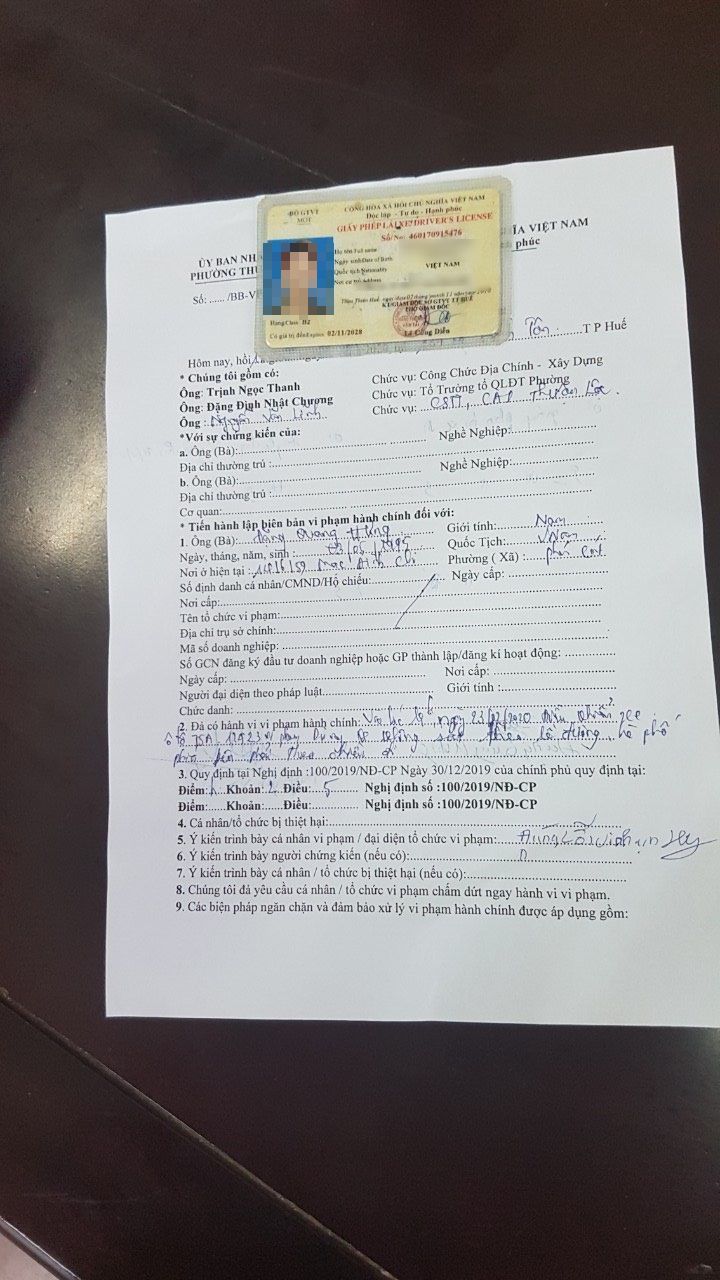 BỘ GTVT
MOT
CỘNG HÒA XÃ HỘI CHỦ NGHĨA VIỆT NAM
Độc lập - Tự do - Hạnh phúc
GIẤY PHÉP LÁI XE/DRIVER'S LICENSE
Số/No: 460170915476
Họ tên/Full name
Ngày sinh/Date of Birth
Quốc tịch/Nationality VIỆT NAM
Nơi cư trú/Address
Hạng/Class B2
Có giá trị đến/Expires 02/11/2028
KT.GIÁM ĐỐC SỞ GTVT TT HUẾ
PHÓ GIÁM ĐỐC
Lê Công Diễn
ỦY BAN NH ĨA VIỆT NAM
PHƯỜNG THU phúc
Số: ...... /BB-V
Hôm nay, hồi Tân T P Huế
* Chúng tôi gồm có:
Ông: Trịnh Ngọc Thanh Chức vụ: Công Chức Địa Chính - Xây Dựng
Ông: Đặng Định Nhật Chương Chức vụ: Tổ Trưởng tổ QLĐT Phường
Ông : Nguyễn Văn Linh Chức vụ: CSTT, CAP Thuận Lộc
*Với sự chứng kiến của:
a. Ông (Bà): Nghề Nghiệp:
Địa chỉ thường trú :
b. Ông (Bà): Nghề Nghiệp:
Địa chỉ thường trú :
Cơ quan:
* Tiến hành lập biên bản vi phạm hành chính đối với:
1. Ông (Bà): Quang Hưng Giới tính: Nam
Ngày, tháng, năm, sinh : Quốc Tịch: V Nam
Nơi ở hiện tại : Phường ( Xã) :
Số định danh cá nhân/CMND/Hộ chiếu: Ngày cấp:
Nơi cấp:
Tên tổ chức vi phạm:
Địa chỉ trụ sở chính:
Mã số doanh nghiệp:
Số GCN đăng ký đầu tư doanh nghiệp hoặc GP thành lập/đăng kí hoạt động:
Ngày cấp: Nơi cấp:
Người đại diện theo pháp luật Giới tính :
Chức danh:
2. Đã có hành vi vi phạm hành chính: Vào lúc ngày 23/12/2020 điều khiển xe
ô tô không sát theo lề đường, hè phố
phía bên phải theo chiều đi
3. Quy định tại Nghị định :100/2019/NĐ-CP Ngày 30/12/2019 của chính phủ quy định tại:
Điểm: Khoản: 2 Điều: 5 Nghị định số :100/2019/NĐ-CP
Điểm: Khoản: Điều: Nghị định số :100/2019/NĐ-CP
4. Cá nhân/tổ chức bị thiệt hại:
5. Ý kiến trình bày cá nhân vi phạm / đại diện tổ chức vi phạm:
6. Ý kiến trình bày người chứng kiến (nếu có):
7. Ý kiến trình bày cá nhân / tổ chức bị thiệt hại (nếu có):
8. Chúng tôi đả yêu cầu cá nhân / tổ chức vi phạm chấm dứt ngay hành vi vi phạm.
9. Các biện pháp ngăn chặn và đảm bảo xử lý vi phạm hành chính được áp dụng gồm: